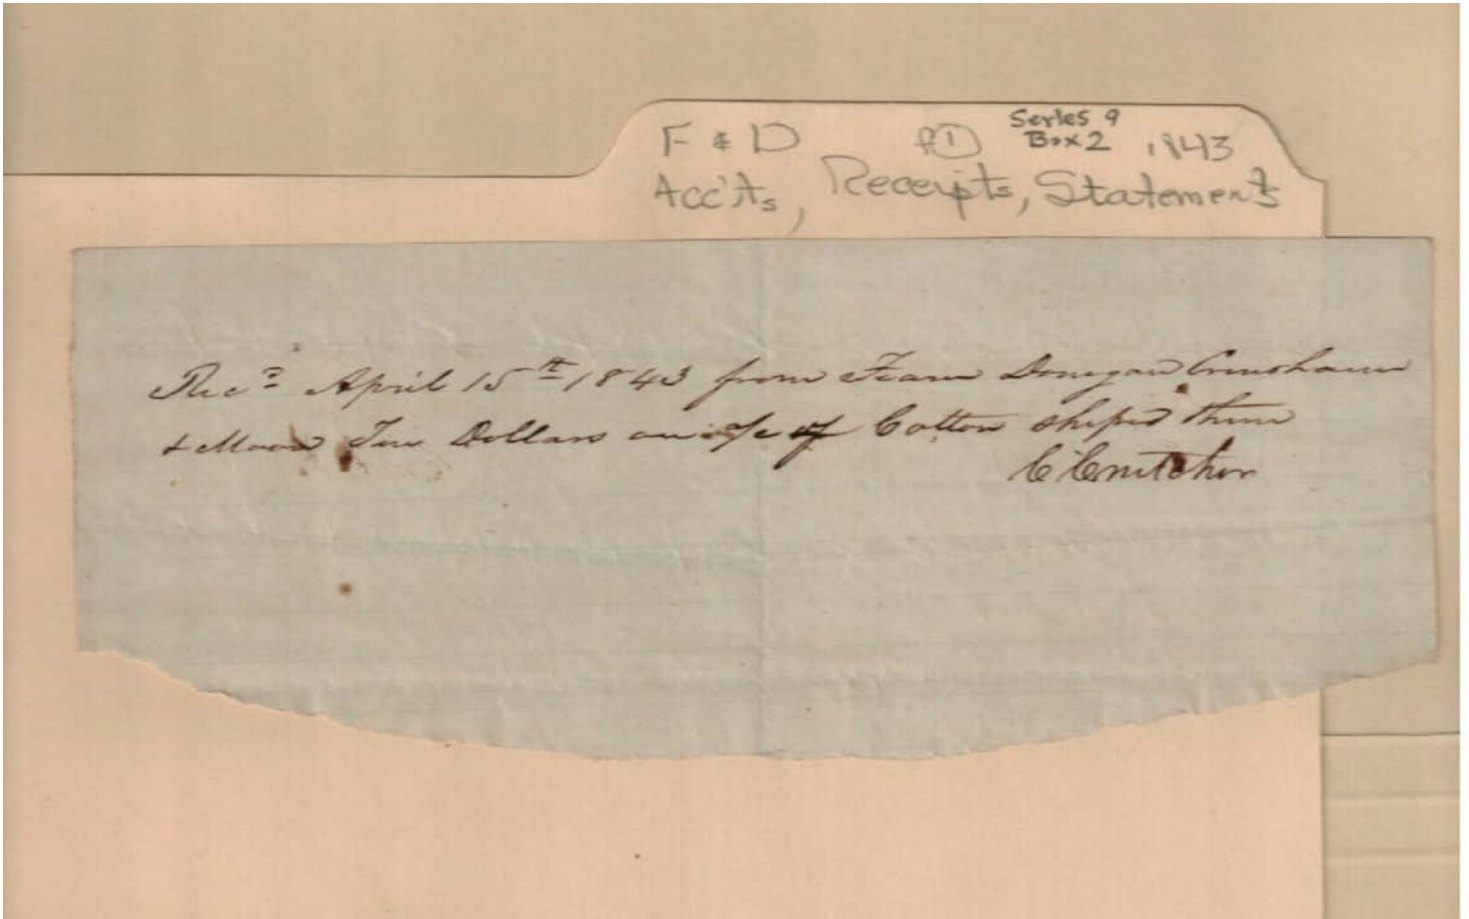 F & D f① Series 9
Box 2 1843
Acc'ts, Receipts, Statements
Recd April 15th 1843 from Fearn Donegan Crenshaw
& Moore Ten Dollars on a/c of Cotton shiped them
C Crutcher